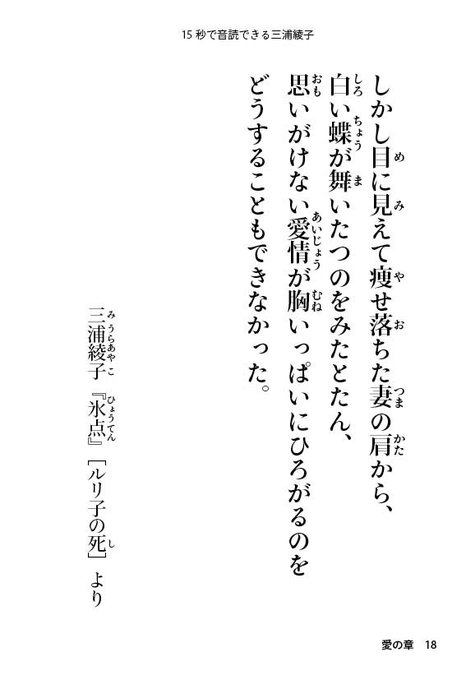 15秒で音読できる三浦綾子
しかし目に見えて痩せ落ちた妻の肩から、
白い蝶が舞いたつのをみたとたん、
思いがけない愛情が胸いっぱいにひろがるのを
どうすることもできなかった。
三浦綾子『氷点』［ルリ子の死］より
愛の章 18